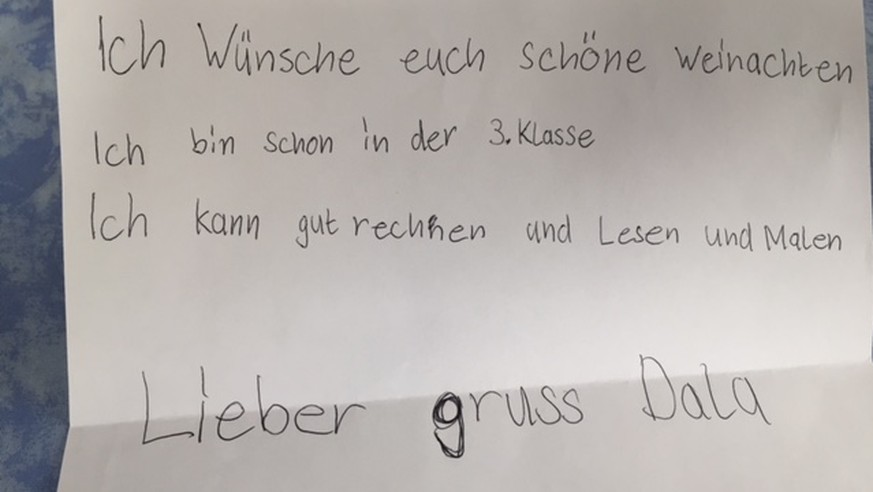 Ich Wünsche euch schöne weinachten
Ich bin schon in der 3. Klasse
Ich kann gut rechnen und Lesen und Malen
Lieber gruss Dala